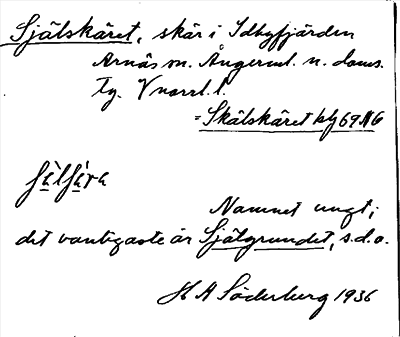 Själskäret, skär i Idbyfjärden
Arnäs sn. Ångerml. n. doms.
tg. Vnorrl. l.
= Skälskäret blg 69 NG
Namnet ungt;
det vanligaste är Själgrundet, s.d.o.
H A Söderberg 1936